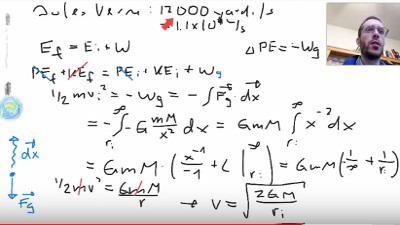 Jules Verne: 12000 yards/s
1.1x10⁴ m/s
E_f = E_i + W
△PE = -W_g
PE_f + KE_f = PE_i + KE_i + W_g
1/2 mv_i² = -W_g = -∫F_g · dx
= -∫_{r_i}^∞ -G mM/x² dx = GmM ∫_{r_i}^∞ x⁻² dx
= GmM · (x⁻¹/-1 + C |_{r_i}^∞) = GmM (1/∞ + 1/r_i)
dx
1/2 mv² = GmM/r → v = √(2GM/r_i)
F_g